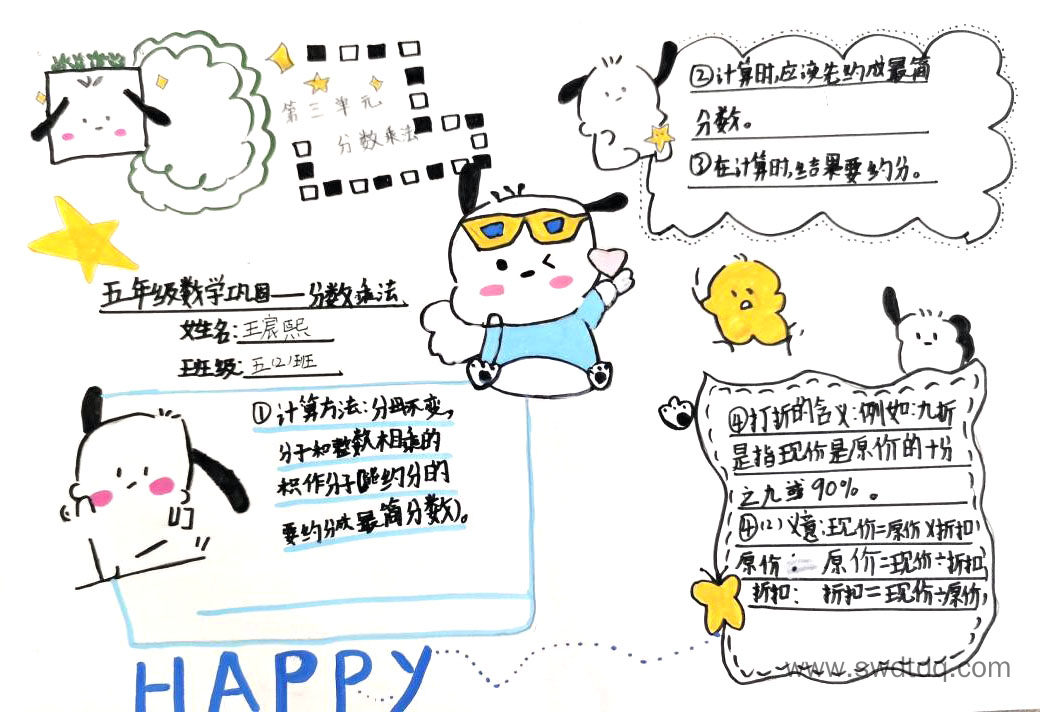 第三单元
分数乘法
五年级数学巩固——分数乘法
姓名:王宸熙
班级:五(2)班
①计算方法:分母不变,
分子和整数相乘的
积作分子(能约分的
要约分成最简分数)。
②计算时,应该先约成最简
分数。
③在计算时,结果要约分。
④打折的含义:例如:九折
是指现价是原价的十分
之九或90%。
④(2)义意:现价=原价×折扣
原价: 原价=现价÷折扣,
折扣: 折扣=现价÷原价,
HAPPY
www.swdtdq.com